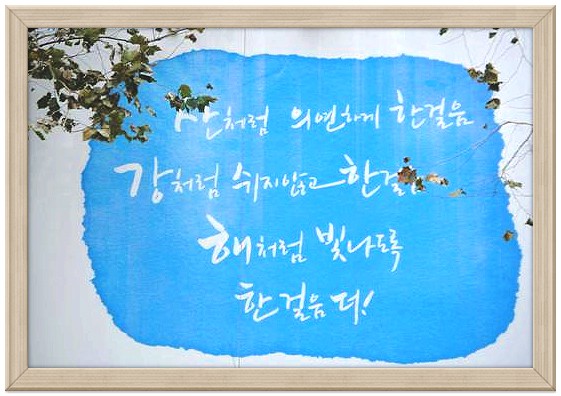 산처럼 의연하게 한걸음
강처럼 쉬지않고 한걸음
해처럼 빛나도록
한걸음 더!